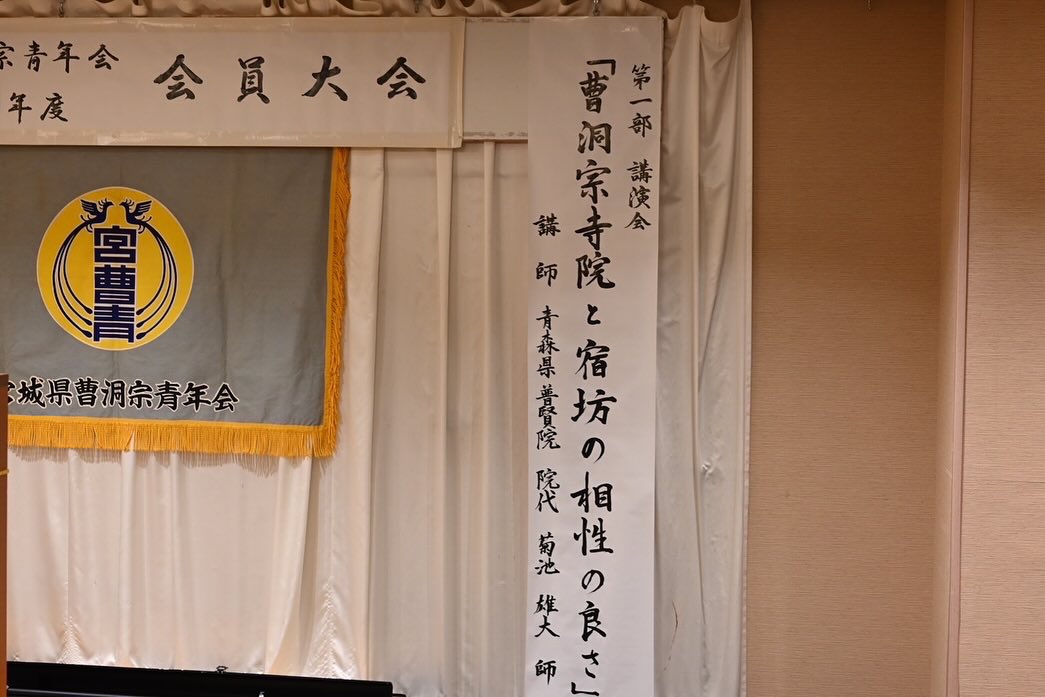 宗青年会
年度
会員大会
第一部 講演会
「曹洞宗寺院と宿坊の相性の良さ」
講師 青森県普賢院 院代 菊池 雄大 師
宮曹青
城県曹洞宗青年会